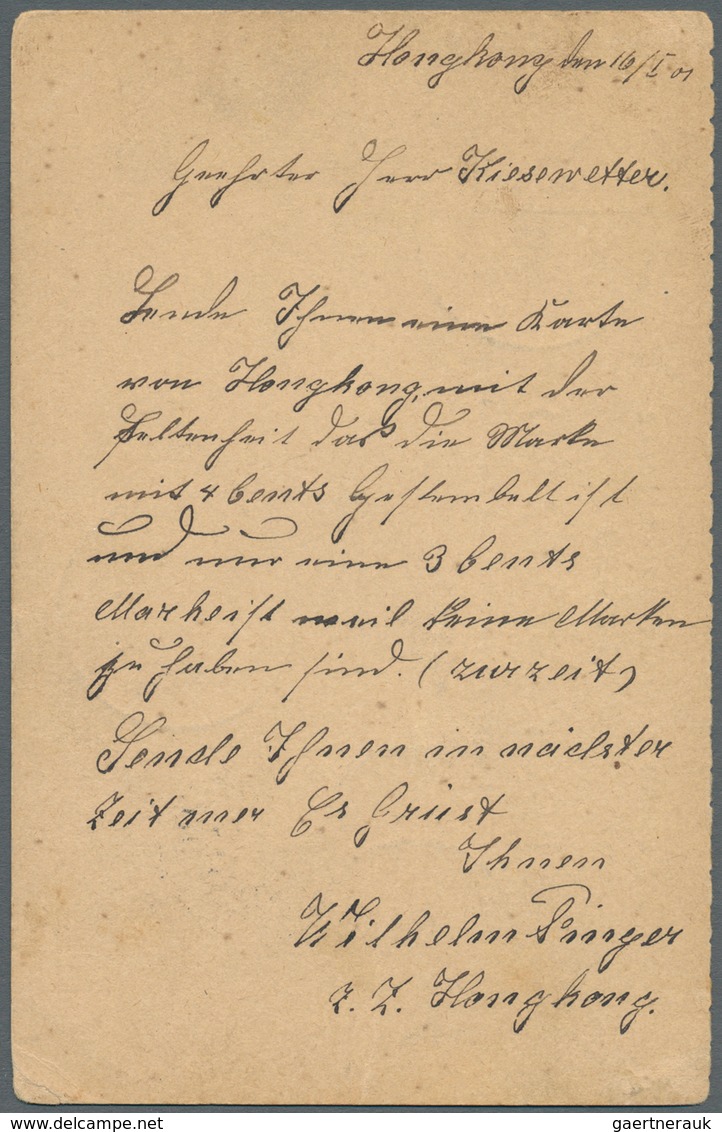 Hongkong den 16/I 01
Geehrter Herr Kiesewetter.
Sende Ihnen eine Karte
von Hongkong, mit der
Seltenheit das die Marke
mit 4 Cents Gestembelt ist
und nur eine 3 Cents
Marke ist weil keine Marken
zu haben sind. (zurzeit)
Sende Ihnen in nächster
Zeit mer Es Grüst
Ihnen
Wilhelm Pinger
z. Z. Hongkong.
delcampe.net
gaertnerauk